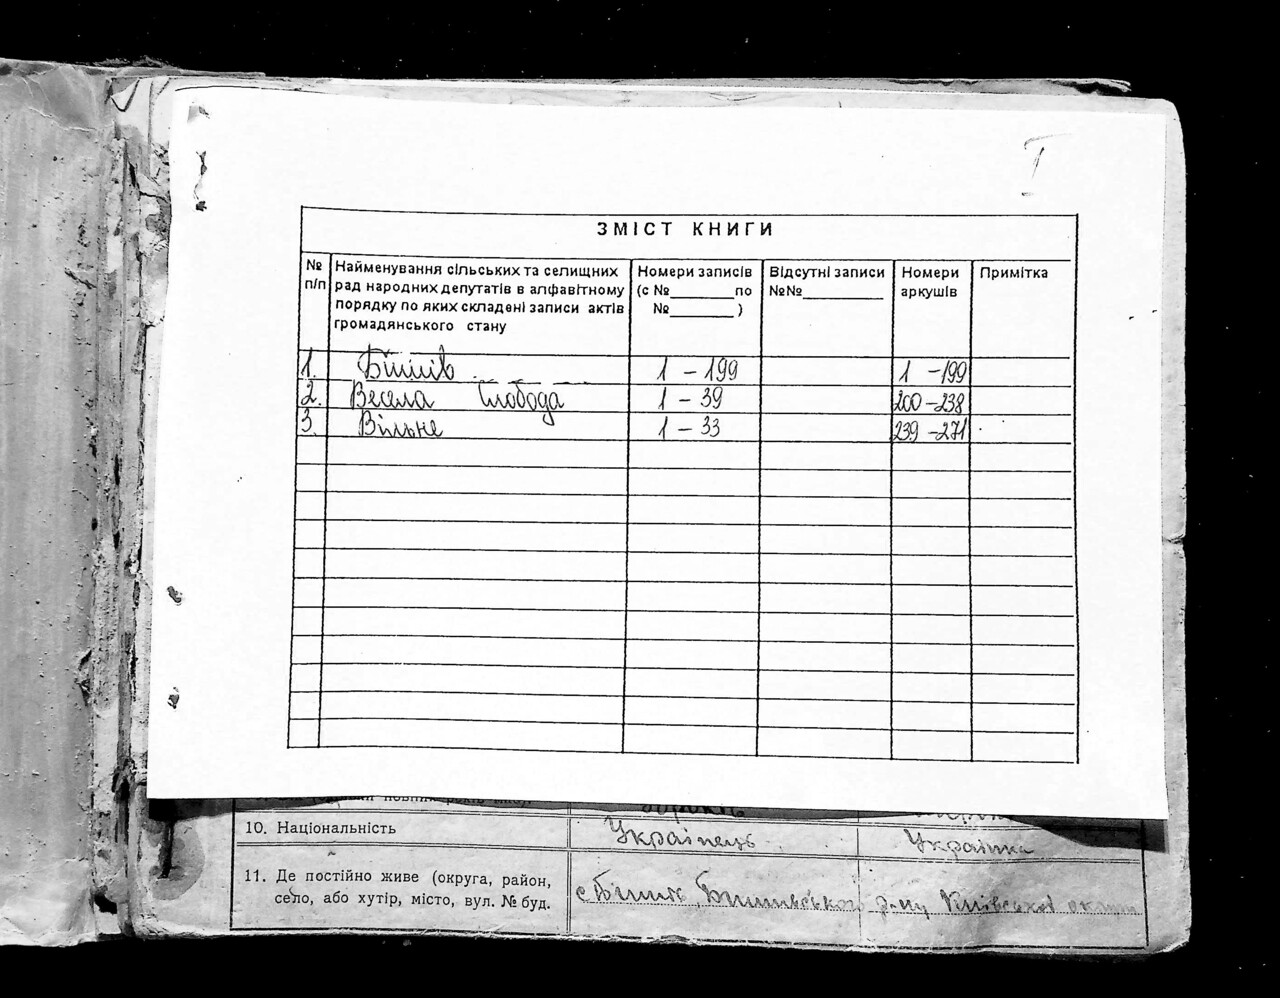 I
ЗМІСТ КНИГИ
№ п/п
Найменування сільських та селищних
рад народних депутатів в алфавітному
порядку по яких складені записи актів
громадянського стану
Номери записів
(с №________ по
№________ )
Відсутні записи
№№__________
Номери
аркушів
Примітка
1. Біліїв 1 - 199 1 - 199
2. Весела Слобода 1 - 39 200 - 238
3. Вільне 1 - 33 239 - 271
10. Національність Українець Українка
11. Де постійно живе (округа, район,
село, або хутір, місто, вул. № буд.
с Київської